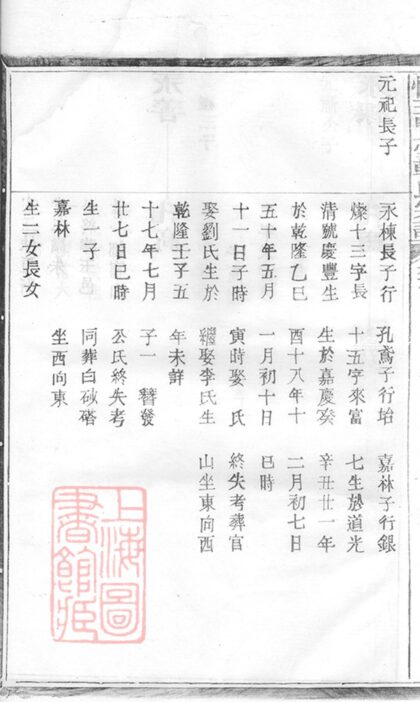 元祀長子
永棟長子行
燦十三字長
清號慶豐生
於乾隆乙巳
五十年五月
十一日子時
娶劉氏生於
乾隆壬子五
十七年七月
廿七日巳時
生一子
嘉林
生二女長女
孔鳶子行培
十五字來富
生於嘉慶癸
酉十八年十
一月初十日
寅時娶 氏
繼娶李氏生
年未詳
子一 簪發
公氏終失考
同葬白砍硞
坐西向東
嘉林子行銀
七生於道光
辛丑廿一年
二月初七日
巳時
終失考葬官
山坐東向西
上海圖
書館藏